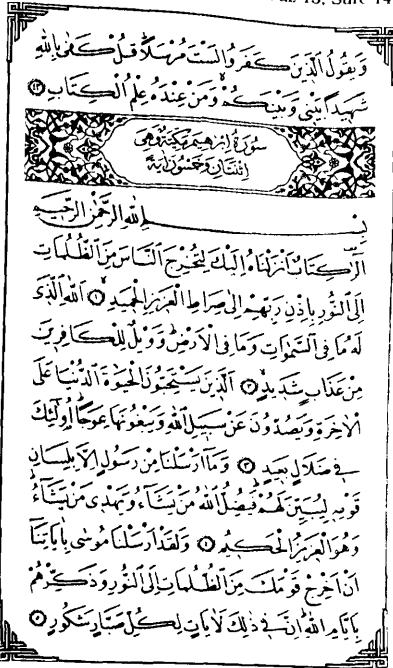 Sure 14
وَيَقُولُ الَّذِينَ كَفَرُوا لَسْتَ مُرْسَلًا قُلْ كَفٰى بِاللّٰهِ
شَهِيدًا بَيْنِي وَبَيْنَكُمْ وَمَنْ عِنْدَهُ عِلْمُ الْكِتَابِ ﴿٤٣﴾
سُورَةُ اِبْرٰهِيمَ مَكِّيَّةٌ وَهِيَ
اِثْنَتَانِ وَخَمْسُونَ اٰيَةً
بِسْمِ اللّٰهِ الرَّحْمٰنِ الرَّحِيمِ
الٓرٰ كِتَابٌ اَنْزَلْنَاهُ اِلَيْكَ لِتُخْرِجَ النَّاسَ مِنَ الظُّلُمَاتِ
اِلَى النُّورِ بِاِذْنِ رَبِّهِمْ اِلٰى صِرَاطِ الْعَزِيزِ الْحَمِيدِ ﴿١﴾ اَللّٰهِ الَّذِي
لَهُ مَا فِي السَّمٰوَاتِ وَمَا فِي الْاَرْضِ وَوَيْلٌ لِلْكَافِرِينَ
مِنْ عَذَابٍ شَدِيدٍ ﴿٢﴾ اَلَّذِينَ يَسْتَحِبُّونَ الْحَيٰوةَ الدُّنْيَا عَلَى
الْاٰخِرَةِ وَيَصُدُّونَ عَنْ سَبِيلِ اللّٰهِ وَيَبْغُونَهَا عِوَجًا اُولٰٓئِكَ
فِي ضَلَالٍ بَعِيدٍ ﴿٣﴾ وَمَٓا اَرْسَلْنَا مِنْ رَسُولٍ اِلَّا بِلِسَانِ
قَوْمِهِ لِيُبَيِّنَ لَهُمْ فَيُضِلُّ اللّٰهُ مَنْ يَشَٓاءُ وَيَهْدِي مَنْ يَشَٓاءُ
وَهُوَ الْعَزِيزُ الْحَكِيمُ ﴿٤﴾ وَلَقَدْ اَرْسَلْنَا مُوسٰى بِاٰيَاتِنَٓا
اَنْ اَخْرِجْ قَوْمَكَ مِنَ الظُّلُمَاتِ اِلَى النُّورِ وَذَكِّرْهُمْ
بِاَيَّامِ اللّٰهِ اِنَّ فِي ذٰلِكَ لَاٰيَاتٍ لِكُلِّ صَبَّارٍ شَكُورٍ ﴿٥﴾